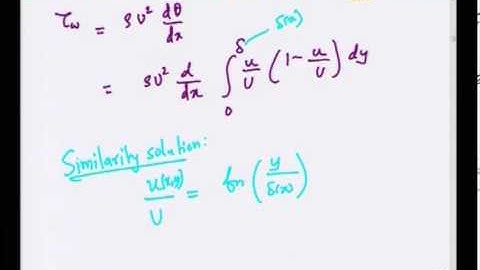 τw = ρU² dθ/dx
δ(x)
= ρU² d/dx ∫₀^δ u/U (1 − u/U) dy
Similarity solution:
u(x,y)/U = fn (y/δ(x))